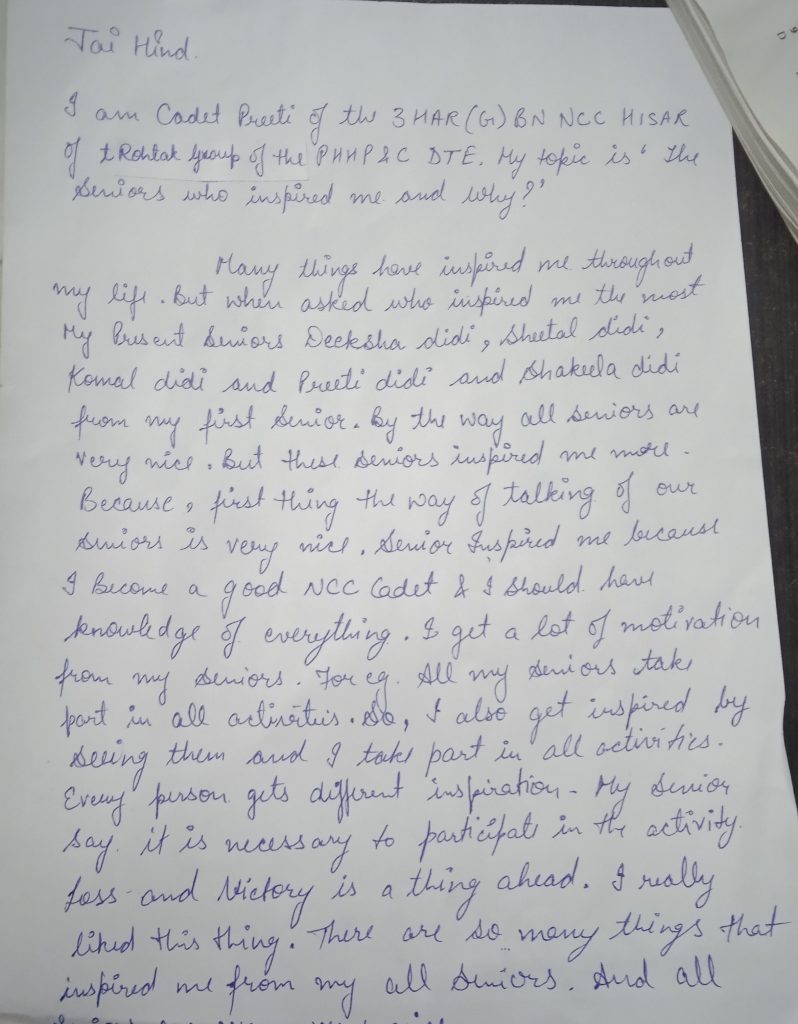 Jai Hind.
I am Cadet Preeti of the 3 HAR(G) BN NCC HISAR
of t Rohtak Group of the PHHP&C DTE. My topic is 'The
Seniors who inspired me and why?'
Many things have inspired me throughout
my life. But when asked who inspired me the most
My Present Seniors Deeksha didi, Sheetal didi,
Komal didi and Preeti didi and Shakeela didi
from my first Senior. By the way all seniors are
very nice. But these seniors inspired me more.
Because, first thing the way of talking of our
seniors is very nice. Senior Inspired me because
I Become a good NCC Cadet & I Should have
knowledge of everything. I get a lot of motivation
from my seniors. For eg. All my seniors take
part in all activities. So, I also get inspired by
seeing them and I take part in all activities.
Every person gets different inspiration - My Senior
say. it is necessary to participate in the activity.
Loss and Victory is a thing ahead. I really
liked this thing. There are so many things that
inspired me from my all seniors. And all